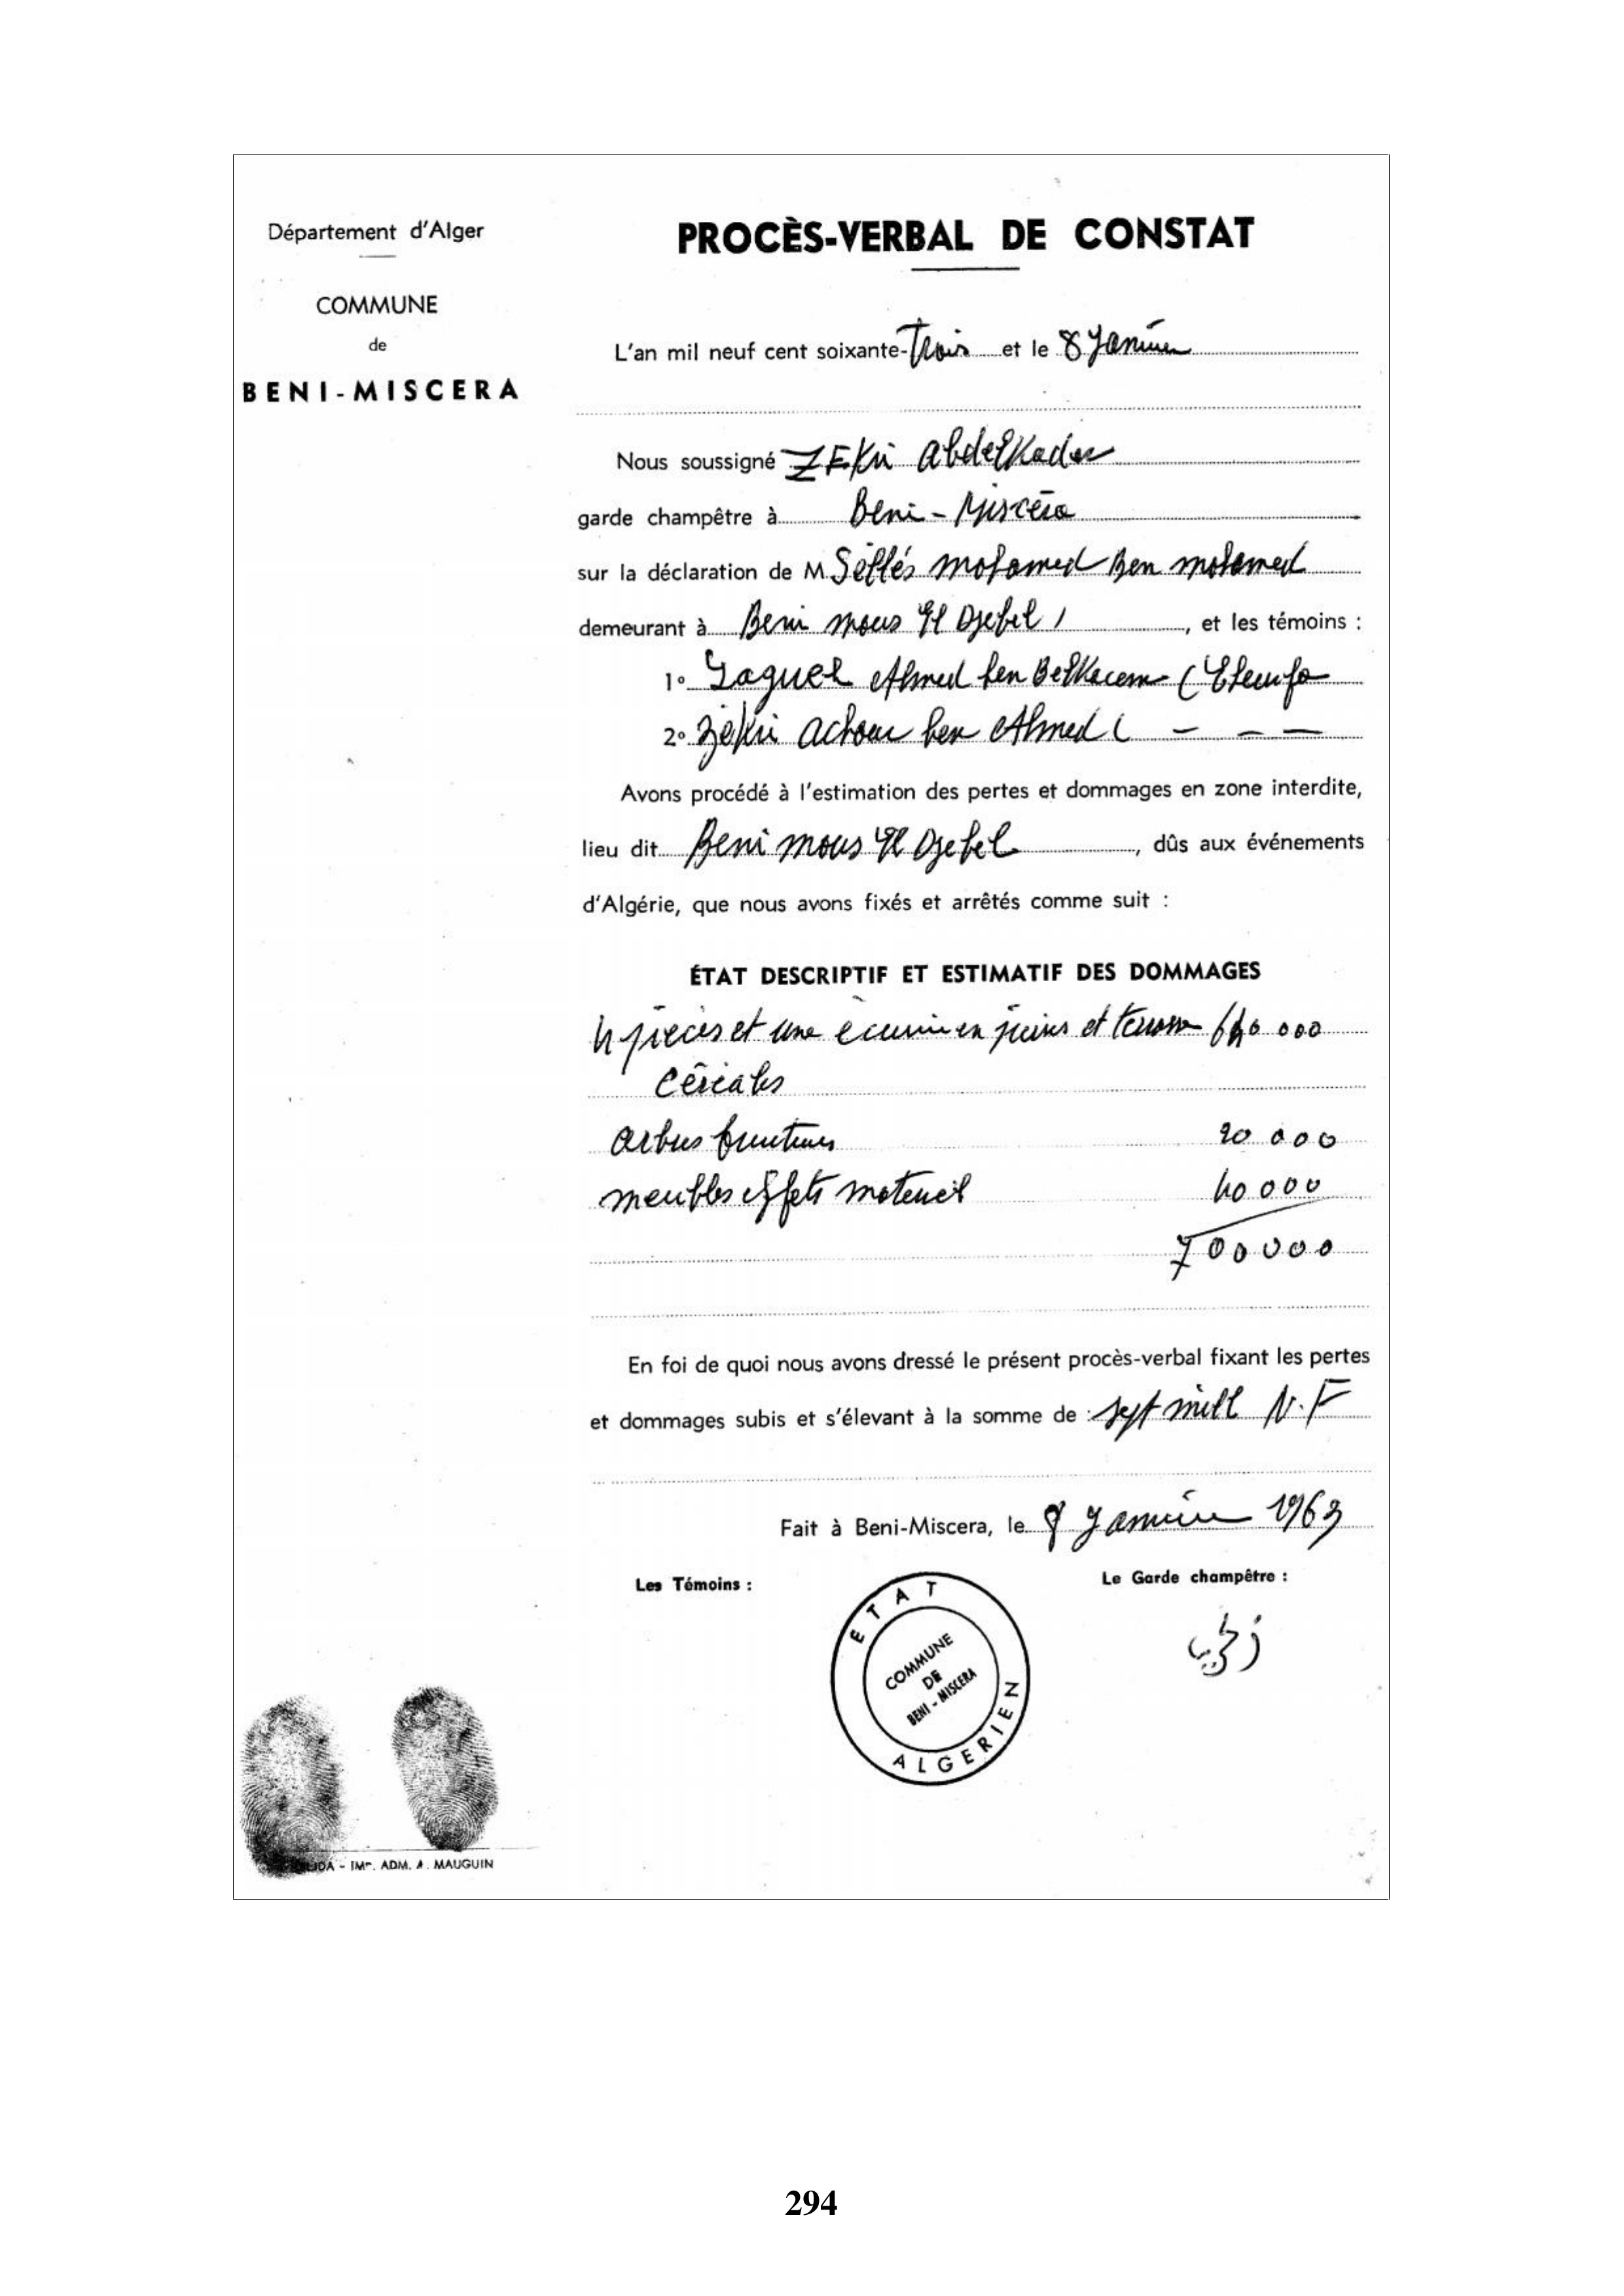 Département d'Alger
COMMUNE
de
BENI-MISCERA
PROCÈS-VERBAL DE CONSTAT
L'an mil neuf cent soixante-Trois et le 8 Janvier
Nous soussigné ZEKri Abdelkader
garde champêtre à Beni-Miscéra
sur la déclaration de M. Séllés mohamed Ben mohamed
demeurant à Beni mous El Djebel, et les témoins :
1° Yaguel Ahmed ben Belkacem (
2° Zékri Achour ben Ahmed ( — — —
Avons procédé à l'estimation des pertes et dommages en zone interdite,
lieu dit Beni mous El Djebel, dûs aux événements
d'Algérie, que nous avons fixés et arrêtés comme suit :
ÉTAT DESCRIPTIF ET ESTIMATIF DES DOMMAGES
4 pièces et une écurie en et 640 000
Céréales
arbres fruitiers 20 000
meubles effets materiel 40 000
700000
En foi de quoi nous avons dressé le présent procès-verbal fixant les pertes
et dommages subis et s'élevant à la somme de : sept mill N.F
Fait à Beni-Miscera, le 8 Janvier 1963
Les Témoins :
Le Garde champêtre :
ETAT ALGERIEN
COMMUNE
DE
BENI-MISCERA
زكري
IMP. ADM. A. MAUGUIN
294